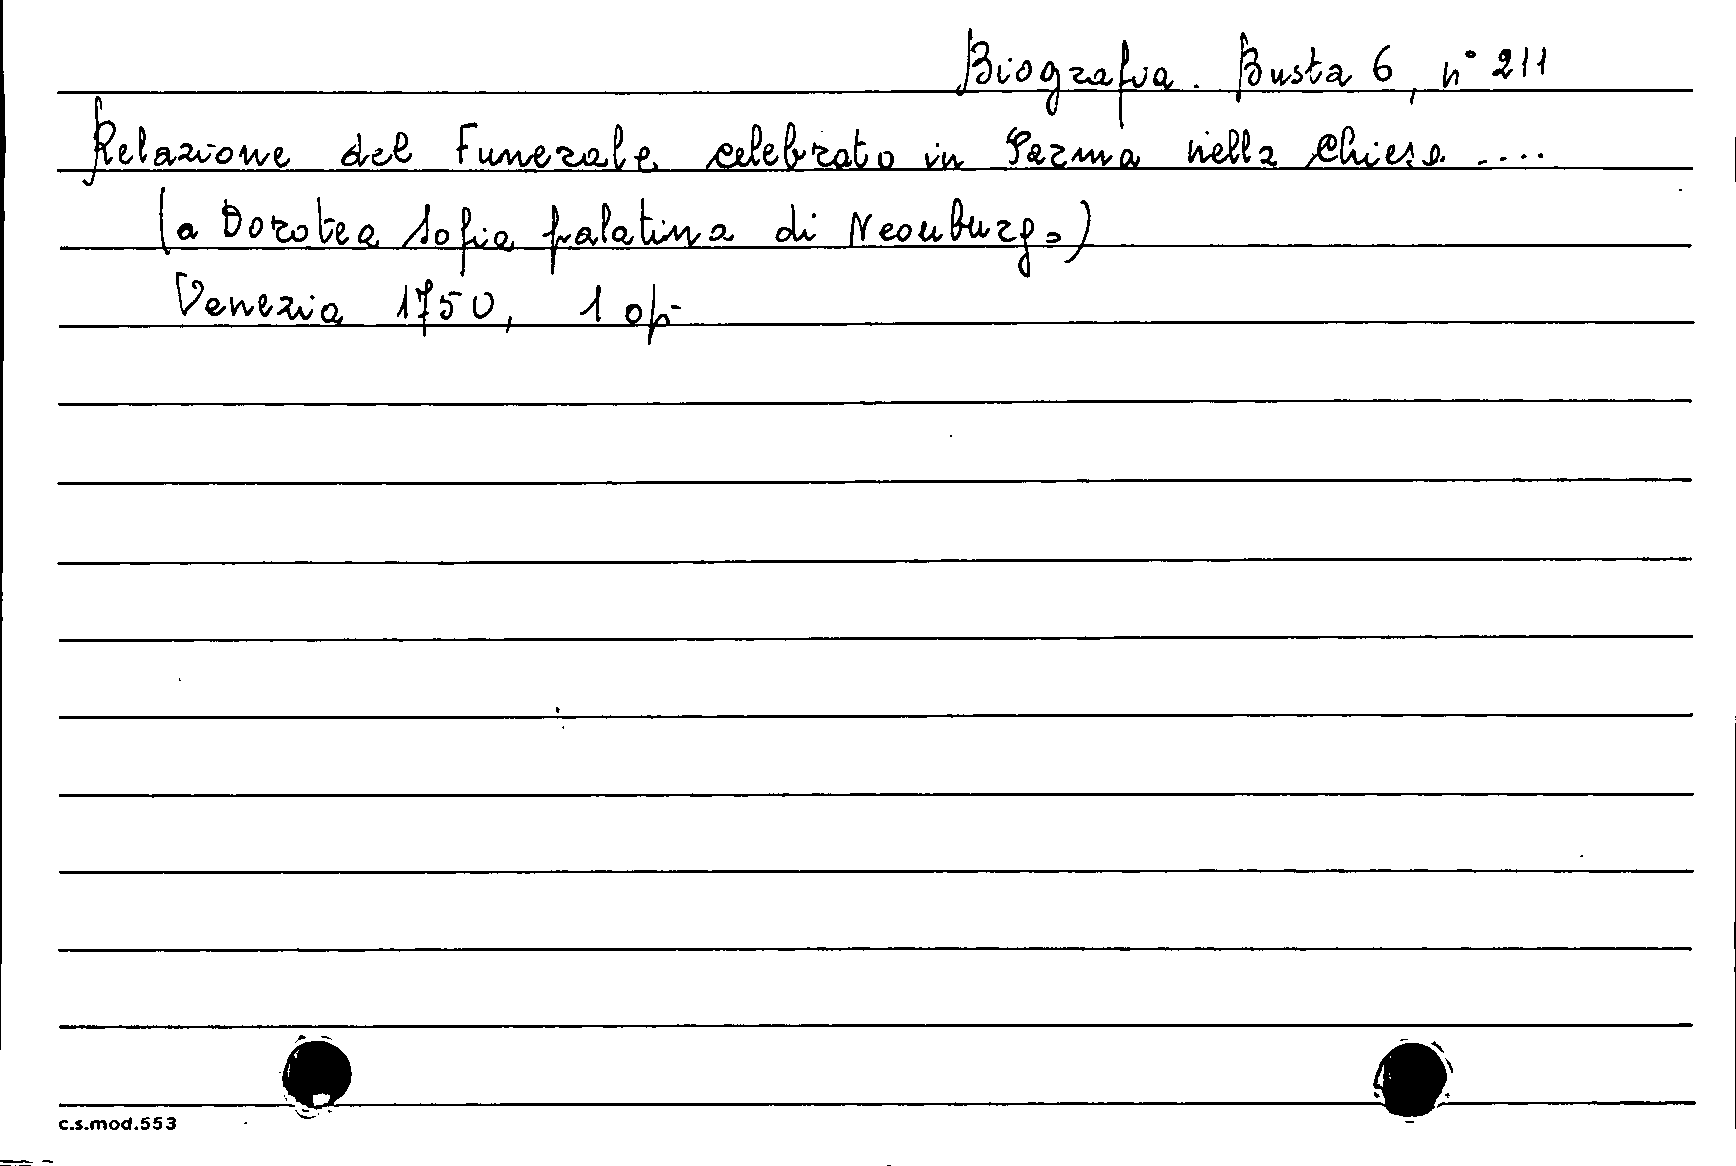 Biografia. Busta 6, n° 211
Relazione del Funerale celebrato in Parma nella Chiesa ....
(a Dorotea Sofia palatina di Neouburgo)
Venezia 1750, 1 op
c.s.mod.553